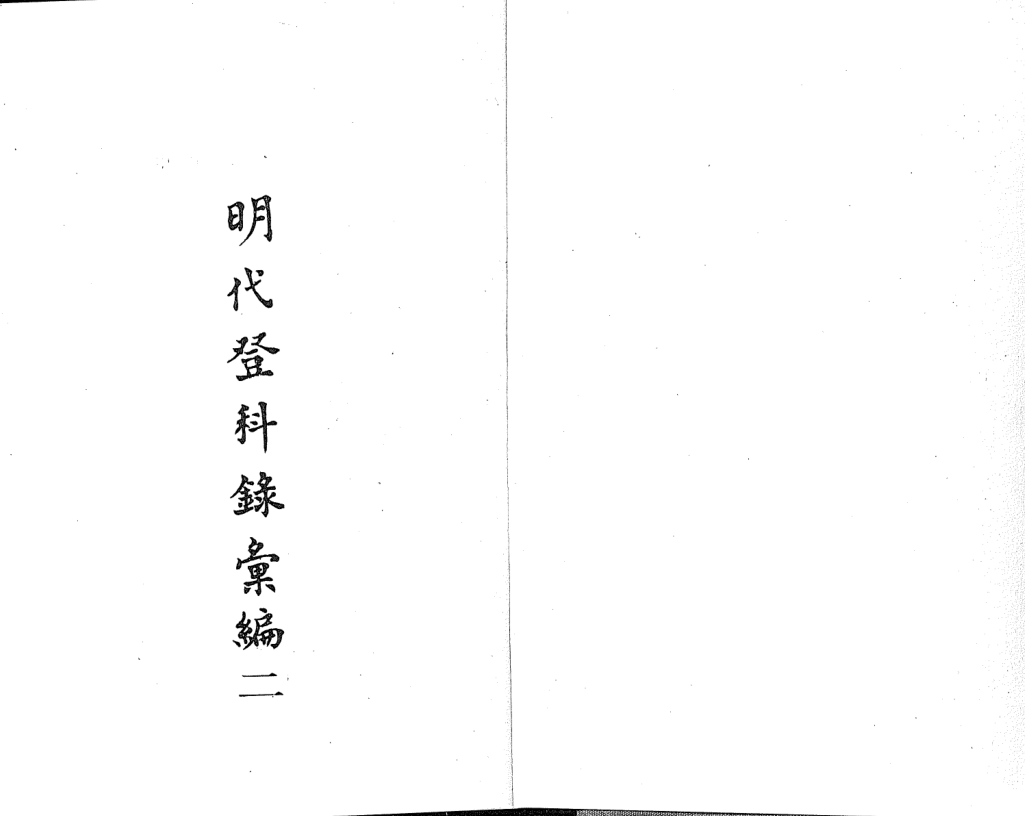 明代登科錄彙編二